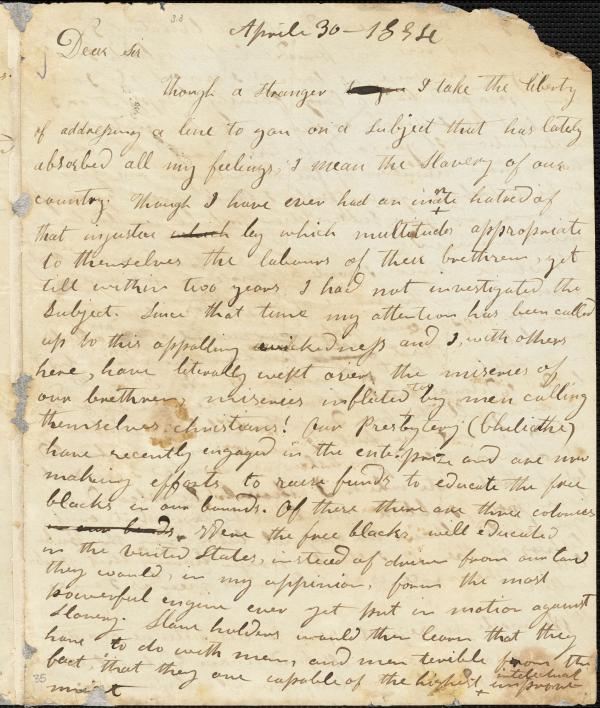 33
Aprile 30 - 1834
Dear Sir
Though a stranger I take the liberty
of addressing a line to you on a subject that has lately
absorbed all my feelings, I mean the Slavery of our
country. Though I have ever had an innate hatred of
that injustice which by which multitudes appropriate
to themselves the labours of their brethren, yet
till within two years I had not investigated the
Subject. Since that time my attention has been called
up to this appalling wickedness and I, with others
here, have literally wept over the miseries of
our brethren, miseries inflicted by men calling
themselves christians! Our Presbytery (Chiliothe)
have recently engaged in the enterprize and are now
making efforts to raise funds to educate the free
blacks in our bounds. Of these there are three colonies
in our bounds. Were the free blacks well educated
in the United States, instead of driven from our land
they would, in my oppinion, form the most
powerful engine ever yet put in motion against
Slavery. Slave holders would then learn that they
have to do with men, and men terible from the
fact that they are capable of the highest intelectual improve-
ment
35